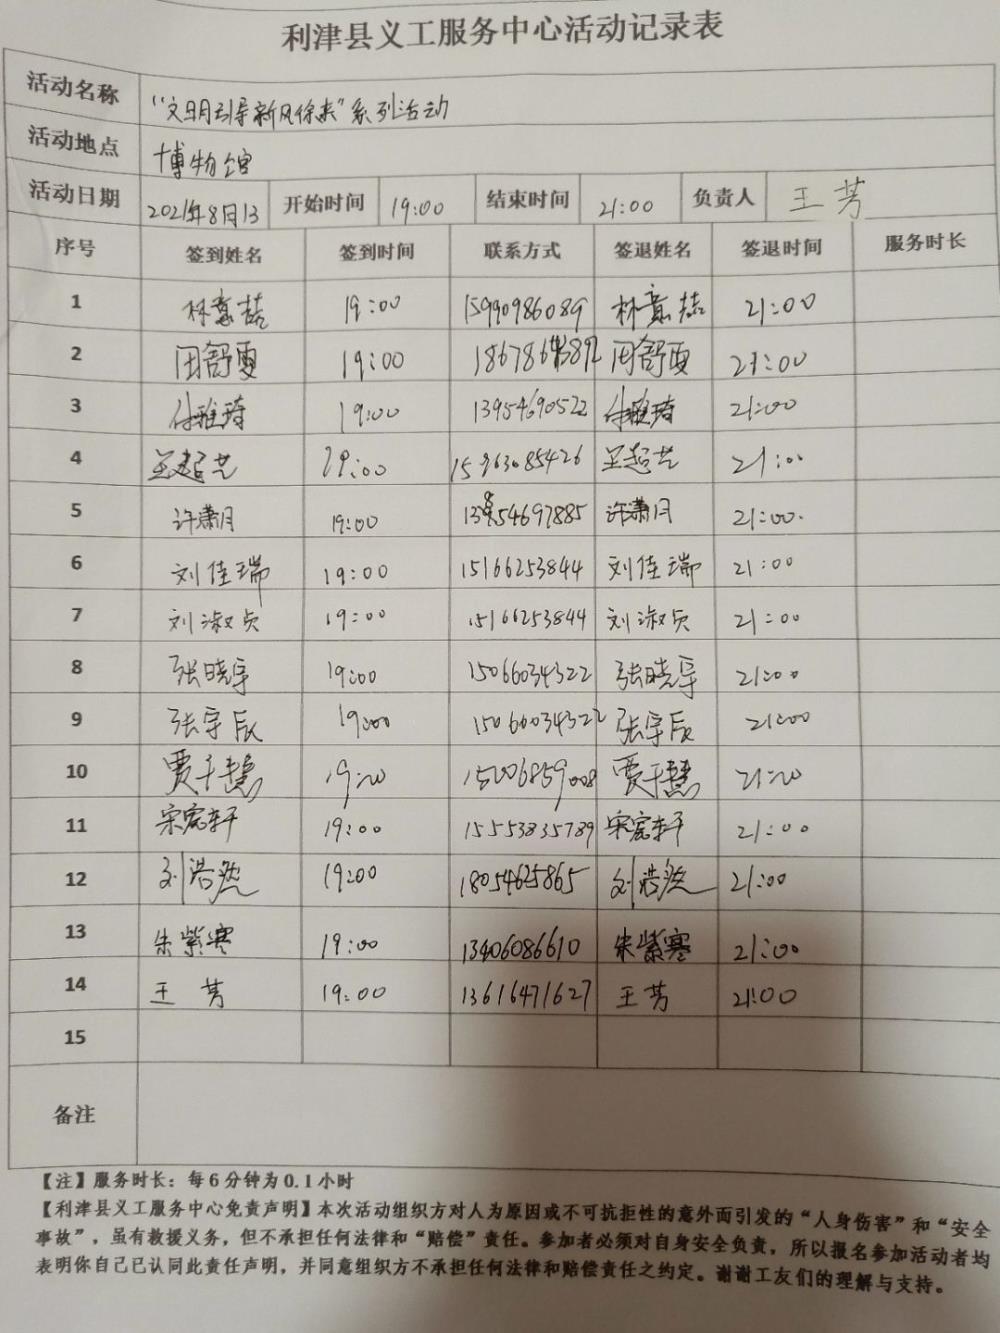 利津县义工服务中心活动记录表
活动名称 “文明引导新风徐来”系列活动
活动地点 博物馆
活动日期 2021年8月13 开始时间 19:00 结束时间 21:00 负责人 王芳
序号 签到姓名 签到时间 联系方式 签退姓名 签退时间 服务时长
1 林意喆 19:00 15990986089 林意喆 21:00
2 田舒雯 19:00 田舒雯 21:00
3 付雅琦 19:00 13954690522 付雅琦 21:00
4 王超艺 19:00 15963085426 王超艺 21:00
5 许潇月 19:00 许潇月 21:00.
6 刘佳瑞 19:00 15166253844 刘佳瑞 21:00
7 刘淑贞 19:00 15166253844 刘淑贞 21:00
8 张晓宇 19:00 15066034322 张晓宇 21:00
9 张宇辰 19:00 15066034322 张宇辰 21:00
10 贾千慧 19:00 15006859008 贾千慧 21:00
11 宋宪轩 19:00 15553835789 宋宪轩 21:00
12 刘浩然 19:00 18054625865 刘浩然 21:00
13 朱紫骞 19:00 13406086610 朱紫骞 21:00
14 王芳 19:00 13616471627 王芳 21:00
15
备注
【注】服务时长：每6分钟为0.1小时
【利津县义工服务中心免责声明】本次活动组织方对人为原因或不可抗拒性的意外而引发的“人身伤害”和“安全
事故”，虽有救援义务，但不承担任何法律和“赔偿”责任。参加者必须对自身安全负责，所以报名参加活动者均
表明你自己已认同此责任声明，并同意组织方不承担任何法律和赔偿责任之约定。谢谢工友们的理解与支持。